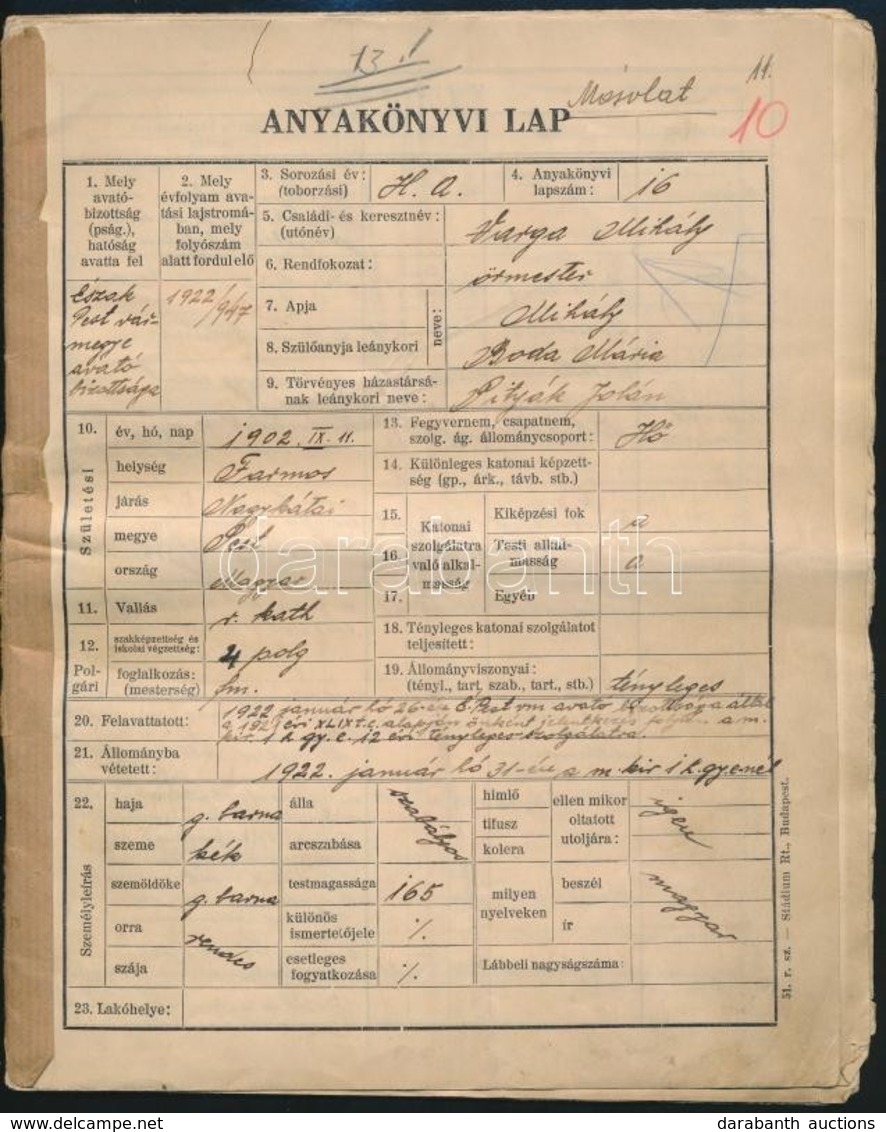 13.!
Másolat
11.
10
ANYAKÖNYVI LAP
1. Mely
avató-
bizottság
(pság.),
hatóság
avatta fel
2. Mely
évfolyam ava-
tási lajstromá-
ban, mely
folyószám
alatt fordul elő
3. Sorozási év:
(toborzási)
H. a.
4. Anyakönyvi
lapszám:
16
5. Családi- és keresztnév:
(utónév)
Varga Mihály
6. Rendfokozat:
őrmester
7. Apja
neve:
Mihály
8. Szülőanyja leánykori
Boda Mária
9. Törvényes házastársá-
nak leánykori neve:
Jolán
Észak
Pest vár-
megye
avató
bizottsága
1922/947
10.
Születési
év, hó, nap
1902. IX. 11.
helység
Farmos
járás
Nagykátai
megye
Pest
ország
Magyar
11. Vallás
r. kath
12.
Pol-
gári
szakképzettség és
iskolai végzettség:
4 polg
foglalkozás:
(mesterség)
fm.
13. Fegyvernem, csapatnem,
szolg. ág. állománycsoport:
Hő
14. Különleges katonai képzett-
ség (gp., árk., távb. stb.)
15.
16.
17.
Katonai
szolgálatra
való alkal-
masság
Kiképzési fok
a
Testi alkal-
masság
a
Egyéb
18. Tényleges katonai szolgálatot
teljesített:
19. Állományviszonyai:
(tényl., tart. szab., tart., stb.)
tényleges
20. Felavattatott:
1922 január hó 26-án É. Pest vm avató bizottsága által
a 192 évi XLIX t.c. alapján önként jelentkezés folytán a m.
kir. 1 h. gy. e. 12 évi tényleges szolgálatra.
21. Állományba
vétetett:
1922. január hó 31-én a m. kir 1 h. gy. e-nél
22.
Személyleírás
haja
g. barna
szeme
kék
szemöldöke
g. barna
orra
rendes
szája
álla
arcszabása
szabályos
testmagassága
165
különös
ismertetőjele
·/.
esetleges
fogyatkozása
·/.
himlő
tifusz
kolera
ellen mikor
oltatott
utoljára:
igen
milyen
nyelveken
beszél
ír
magyar
Lábbeli nagyságszáma:
23. Lakóhelye:
51. r. sz. — Stádium Rt., Budapest.
darabanth
darabanth auctions